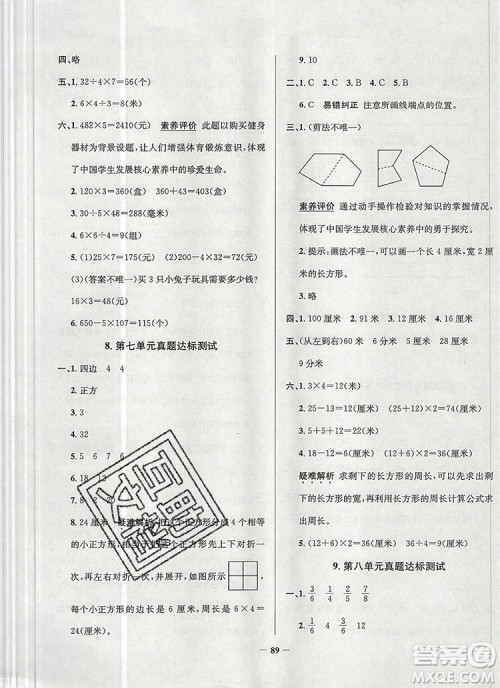 四、略
五、1. 32÷4×7=56(个)
2. 6×4÷3=8(米)
六、1. 482×5=2410(元) 素养评价 此题以购买健身
器材为背景设题,让人们增进体育锻炼意识,体现
了中国学生发展核心素养中的珍爱生命。
2. 120×3=360(盒) 360+43=403(盒)
3. 30÷5×48=288(毫米)
4. 9×8÷6=12(组)
5. (1)25×7=175(元) (2)50×7=350(元)
(3)(答案不唯一)买 3 只小兔子玩具需要多少钱?
16×3=48(元)
6. 650-5×107=115(元)
8. 第七单元真题达标测试
一、1. 四边 4 4
2. 正方
3. 4
4. 32
5. 6 7 6
6. 18
7. 12
8. 24 厘米 疑难解析 将一张正方形分成 4 个相等
的小正方形,
再左右对折一次,并展开,如图:
每个小正方形的边长是 6 厘米,周长是 6×4=
24(厘米)。
9. 10
二、1. C 2. C 3. B 4. A 5. C
6. C 易错纠正 注意所画线端点的位置。
三、1. (剪法不唯一)
素养评价 通过动手操作检验对知识的掌握情况,
体现了中国学生发展核心素养中的勇于探究。
2. 提示:画法不唯一,可以画长 4 厘米、宽 2 厘米
的长方形。
3. 略
四、1. 100 厘米 2. 91 米 3. 12 厘米 4. 80 厘米
五、(从左到右)9 厘米 15 厘米 4 厘米 8 厘米
9 厘米
六、1. 3×4=12(厘米)
2. 25-13=12(厘米) (25+12)×2=74(厘米)
3. 15-10=5(厘米) (15+5)×2=40(厘米)
4. 18-12=6(厘米) (12+6)×2=36(厘米)
疑难解析 求剩下的长方形的周长,先求出剩下长
方形的长和宽,再利用长方形的周长计算公式求出
周长。
5. (10+8)×2=36(厘米) 36÷4=9(厘米)
9. 第八单元真题达标测试
一、1. 3/6 1/4 4/8 1/3
2. 1/6 4/6 2/6
89
互助文档
答案圈
MXQE.COM